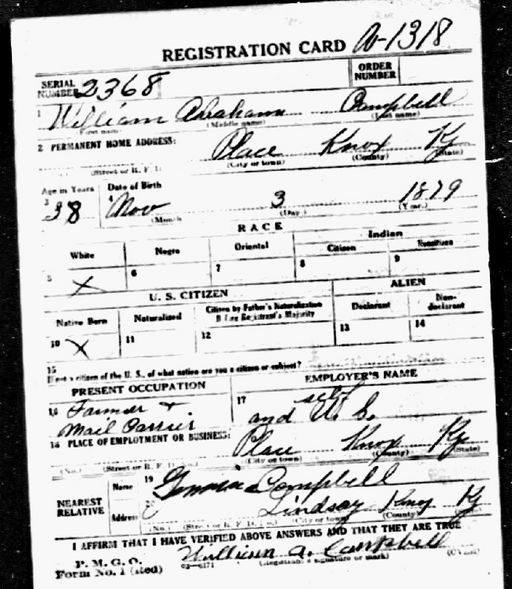 REGISTRATION CARD A-1318
SERIAL NUMBER 2368 ORDER NUMBER
1 William Abraham Campbell
(First name) (Middle name) (Last name)
2 PERMANENT HOME ADDRESS: Place Knox Ky
(Street or R. F. D.) (City or town) (County) (State)
Age in Years Date of Birth
3 38 4 Nov 3 1879
(Month) (Day) (Year)
RACE
White Negro Oriental Indian
Citizen Noncitizen
5 X 6 7 8 9
U. S. CITIZEN ALIEN
Native Born Naturalized Citizen by Father's Naturalization Before Registrant's Majority Declarant Non-declarant
10 X 11 12 13 14
15
If not a citizen of the U. S., of what nation are you a citizen or subject?
PRESENT OCCUPATION EMPLOYER'S NAME
16 Farmer + 17 self
Mail Carrier and U. S.
18 PLACE OF EMPLOYMENT OR BUSINESS: Place Knox Ky
(No.) (Street or R. F. D.) (City or town) (County) (State)
NEAREST RELATIVE
Name 19 Campbell
Address 20 Lindsay Knox Ky
(No.) (Street or R. F. D. No.) (City or town) (County) (State)
I AFFIRM THAT I HAVE VERIFIED ABOVE ANSWERS AND THAT THEY ARE TRUE
P. M. G. O.
Form No. 1 (Red) William A. Campbell
(Registrant's signature or mark) (OVER)